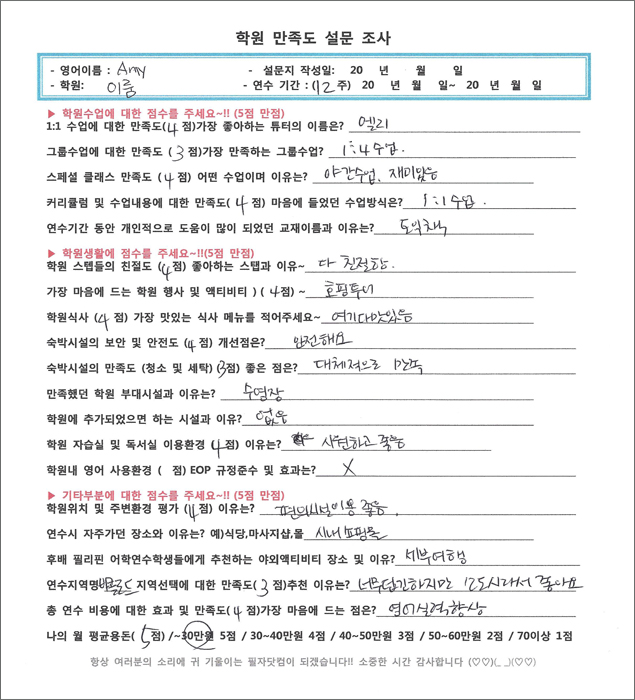 학원 만족도 설문 조사
- 영어이름 : Amy - 설문지 작성일: 20 년 월 일
- 학원: 이룸 - 연수 기간 : (12주) 20 년 월 일~ 20 년 월 일
▶ 학원수업에 대한 점수를 주세요~!! (5점 만점)
1:1 수업에 대한 만족도(4점)가장 좋아하는 튜터의 이름은? 엘리
그룹수업에 대한 만족도 ( 3점)가장 만족하는 그룹수업? 1:4 수업.
스페셜 클래스 만족도 (4점) 어떤 수업이며 이유는? 야간수업, 재미있음
커리큘럼 및 수업내용에 대한 만족도( 4 점) 마음에 들었던 수업방식은? 1:1 수업.
연수기간 동안 개인적으로 도움이 많이 되었던 교재이름과 이유는? 토익책
▶ 학원생활에 점수를 주세요~!!(5점 만점)
학원 스텝들의 친절도 (4점) 좋아하는 스탭과 이유~ 다 친절함.
가장 마음에 드는 학원 행사 및 액티비티 ) ( 4점) ~ 호핑투어
학원식사 (4 점) 가장 맛있는 식사 메뉴를 적어주세요~ 여기다맛있음
숙박시설의 보안 및 안전도 (4 점) 개선점은? 안전해요
숙박시설의 만족도 (청소 및 세탁) (3점) 좋은 점은? 대체적으로 만족
만족했던 학원 부대시설과 이유는? 수영장
학원에 추가되었으면 하는 시설과 이유? 없음
학원 자습실 및 독서실 이용환경 ( 4점) 이유는? 시원하고 좋음
학원내 영어 사용환경 ( 점) EOP 규정준수 및 효과는? X
▶ 기타부분에 대한 점수를 주세요~!! (5점 만점)
학원위치 및 주변환경 평가 (4점) 이유는? 편의시설이용 좋음.
연수시 자주가던 장소와 이유는? 예)식당,마사지샵,몰 시내 쇼핑몰
후배 필리핀 어학연수학생들에게 추천하는 야외액티비티 장소 및 이유? 세부여행
연수지역명(바콜로드 지역선택에 대한 만족도( 3 점)추천 이유는? 너무답긴하지만 도시라서 좋아요
총 연수 비용에 대한 효과 및 만족도( 4점)가장 마음에 드는 점은? 영어실력향상
나의 월 평균용돈( 5점) /~30만원 5점 / 30~40만원 4점 / 40~50만원 3점 / 50~60만원 2점 / 70이상 1점
항상 여러분의 소리에 귀 기울이는 필자닷컴이 되겠습니다!! 소중한 시간 감사합니다 (♡♡)(_ _)(♡♡)